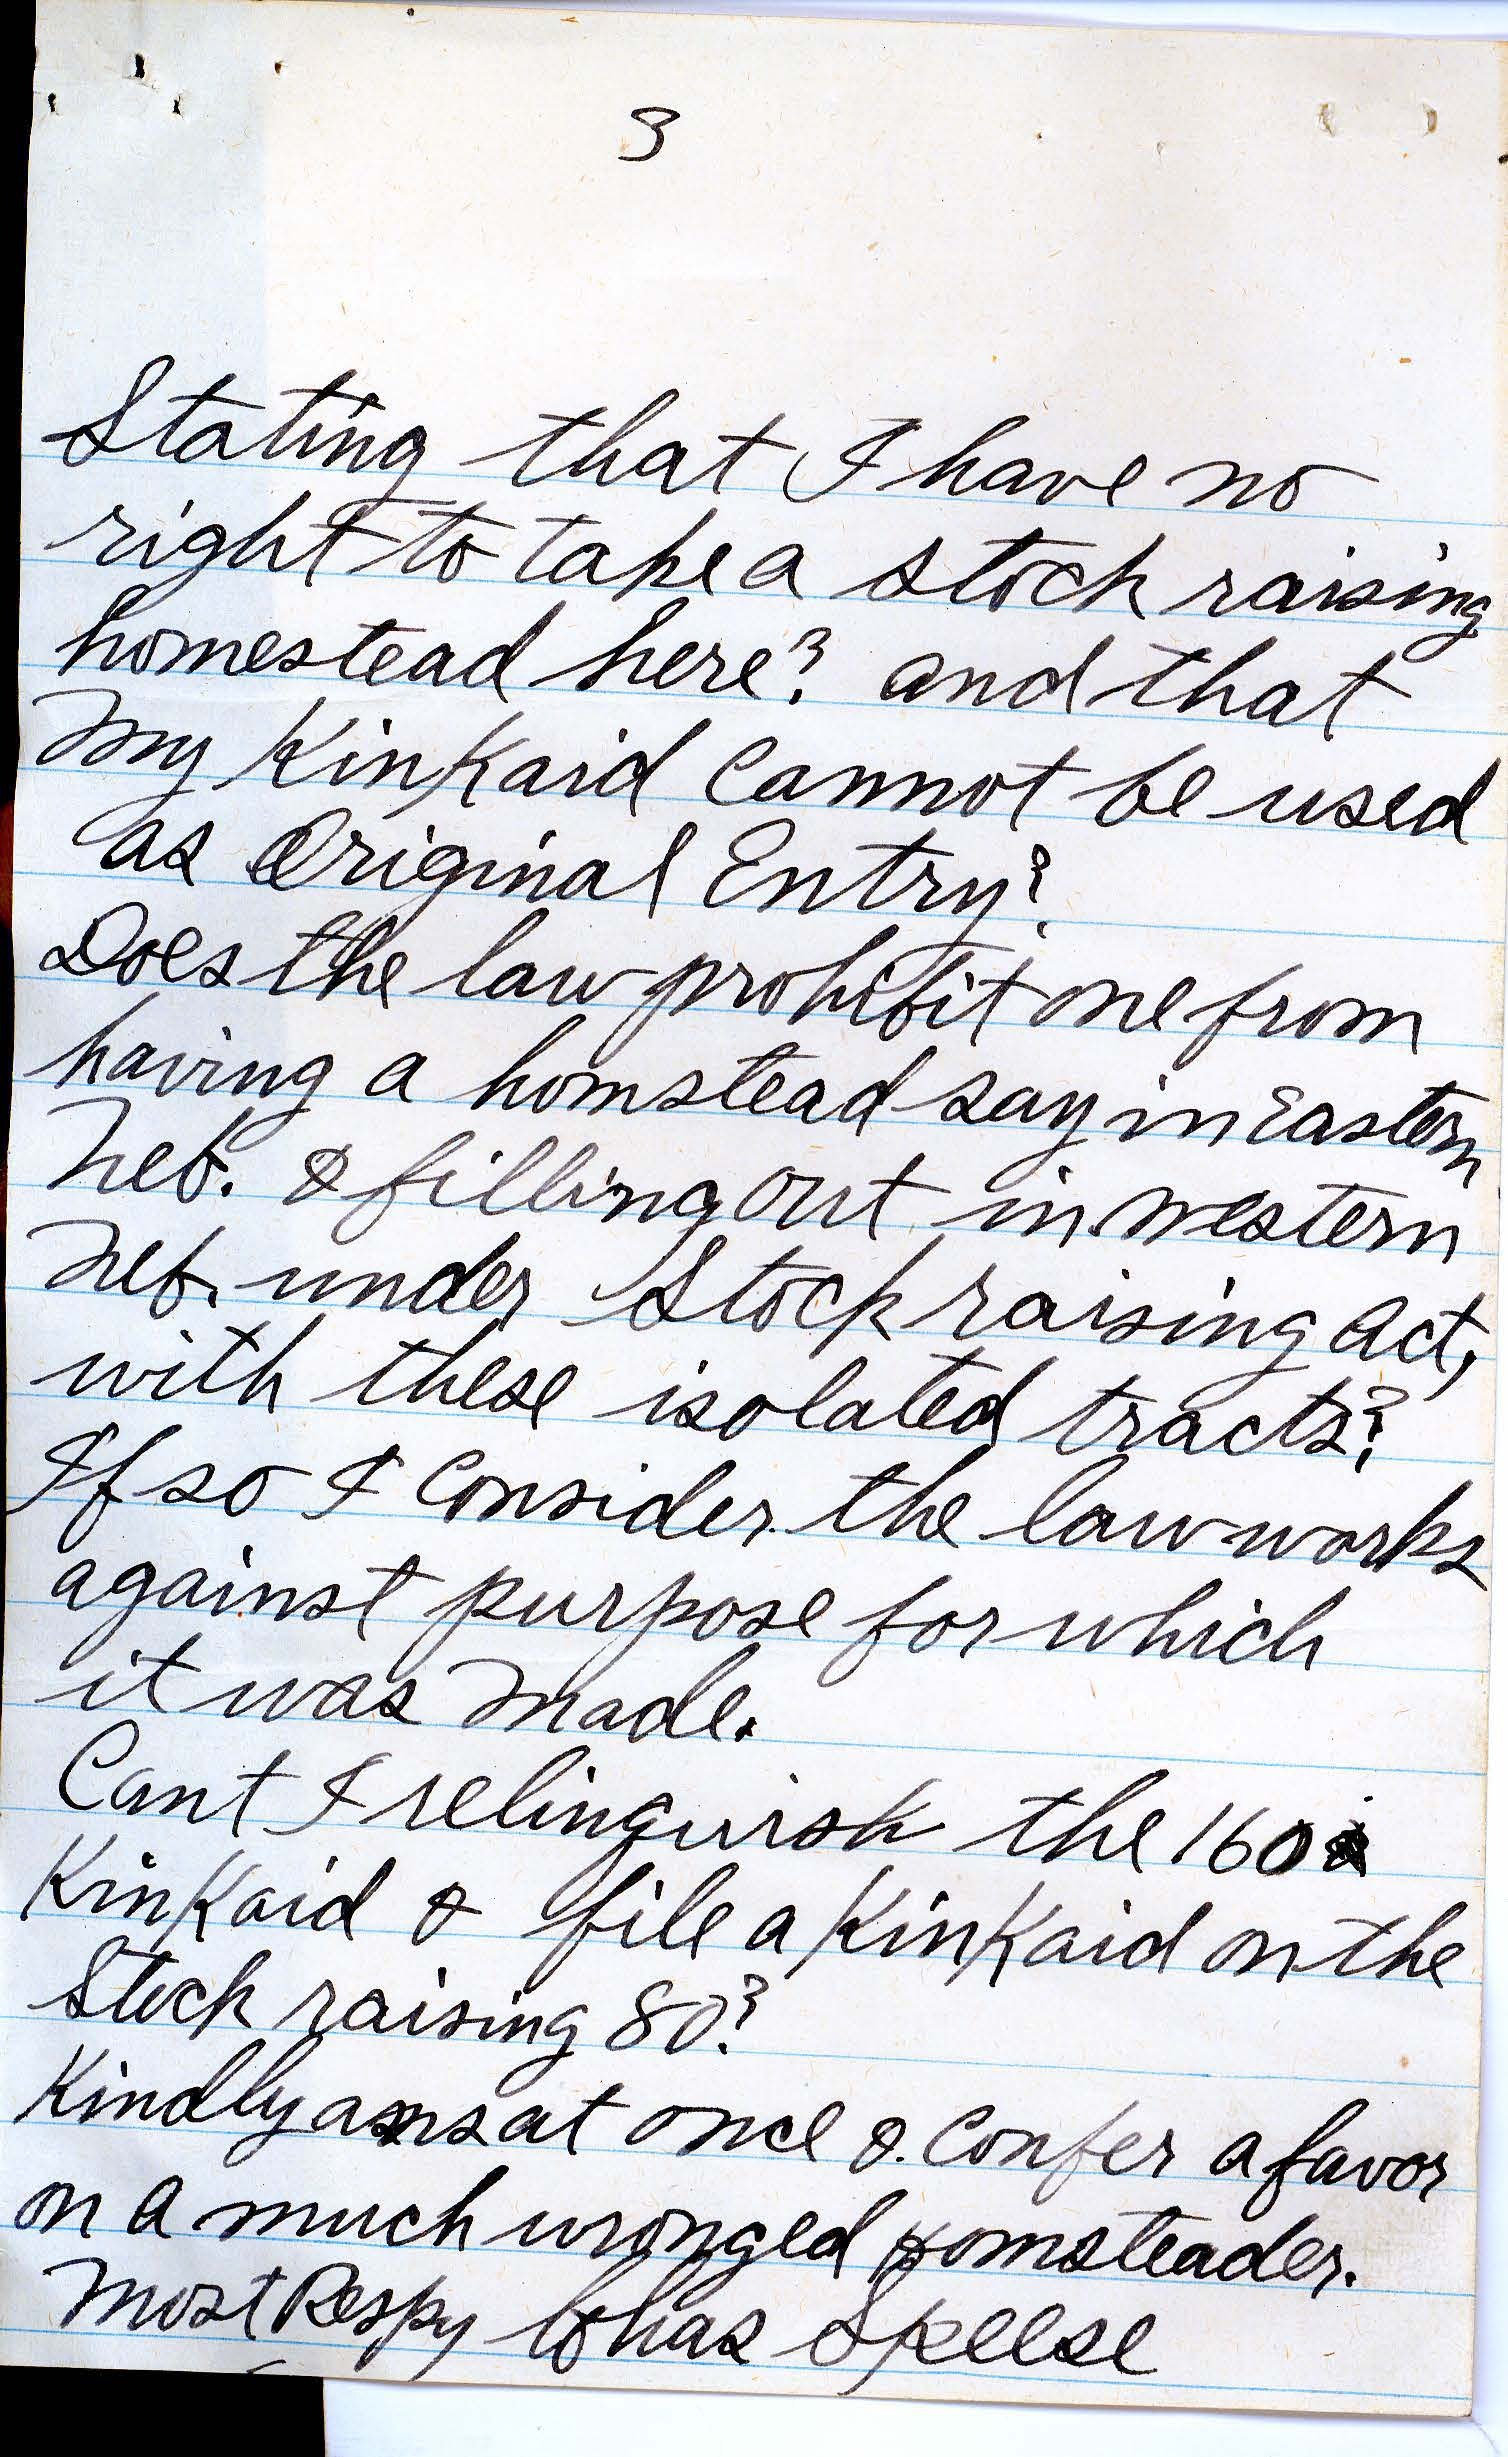 3
Stating that I have no
right to take a stock raising
homestead here? and that
my Kinkaid Cannot be used
as Original Entry?
Does the law prohibit one from
having a homstead say in Eastern
Neb. & filling out in western
Neb. under Stock raising Act,
with these isolated tracts?
If so I Consider the law works
against purpose for which
it was made.
Cant I relinquish the 160
KinKaid & file a KinKaid on the
Stock raising 80?
Kindly ans at once & Confer a favor
on a much wronged Homsteader.
Most Respy Chas Speese